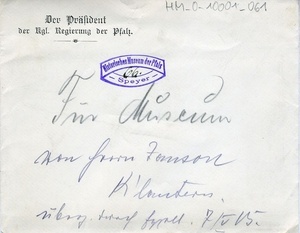 HM-0-10001-061
Der Präsident
der Kgl. Regierung der Pfalz.
Historisches Museum der Pfalz
Speyer
Für Museum
von Herrn Janson
K'lautern